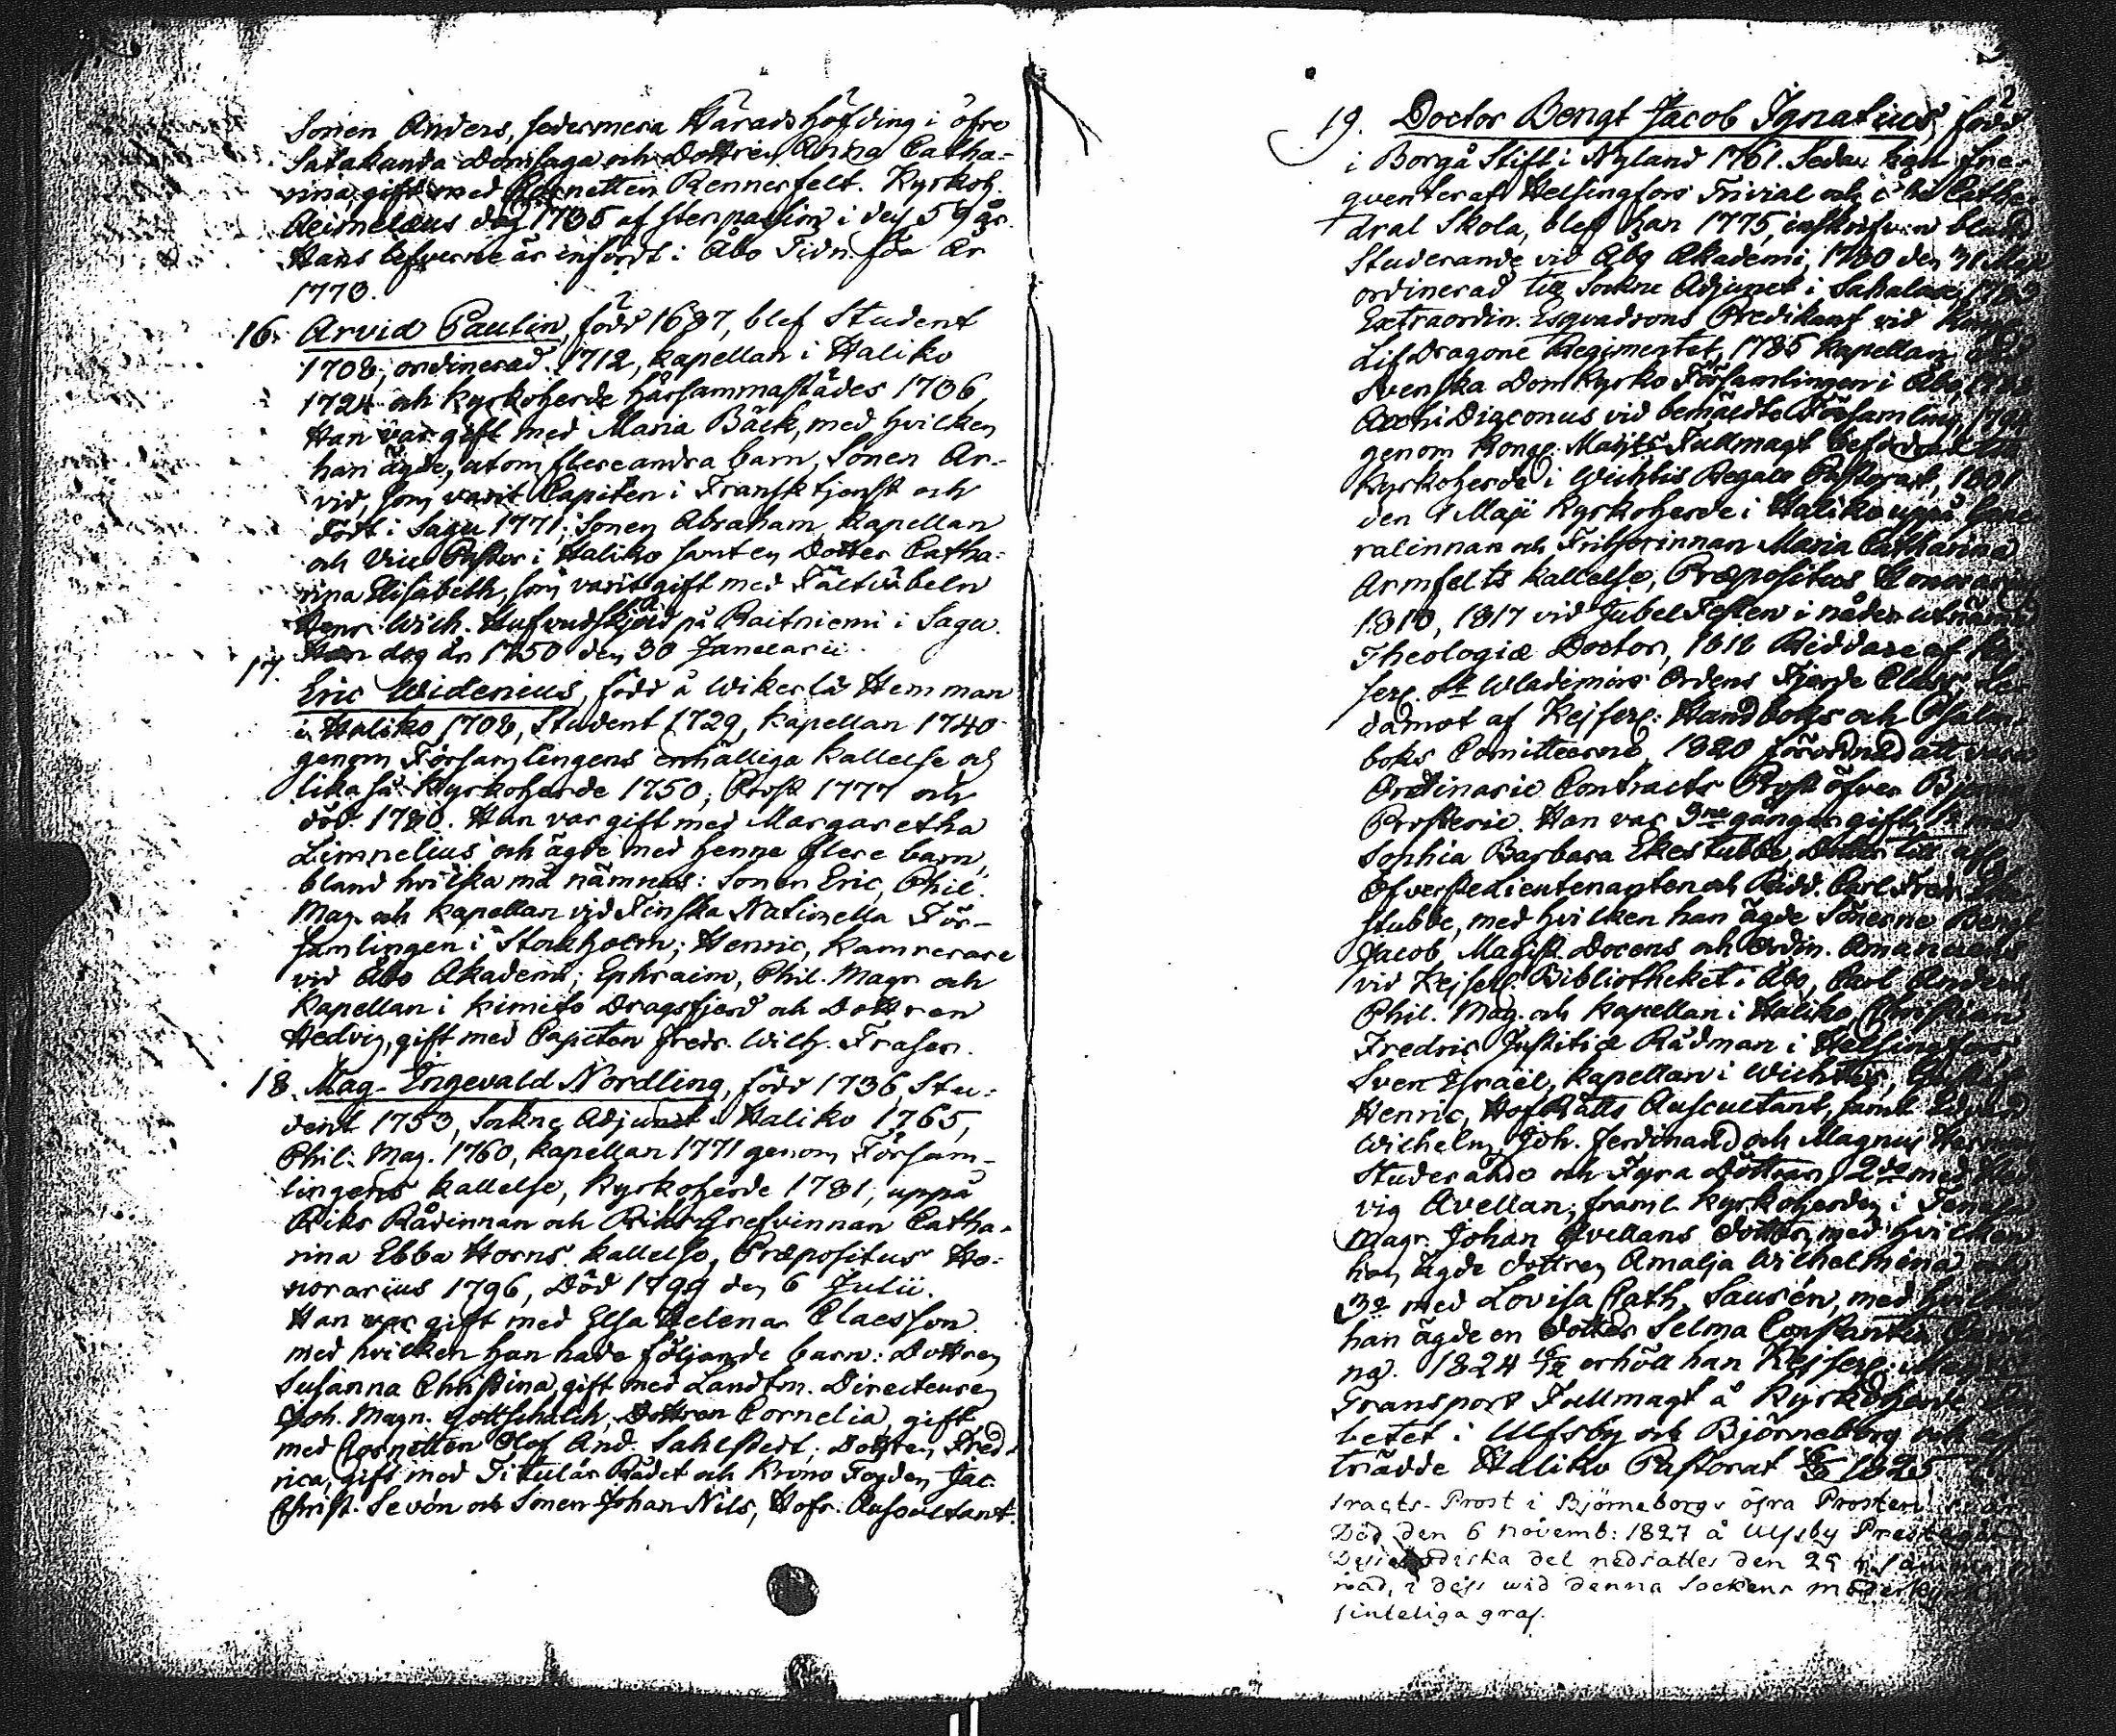 Sonen Anders, sedermera Häradshöfding i öfre
Satakunda Domsaga och Dottren Anna Catha-
rina gift med Cornetten Rennerfelt. Kyrkoh.
Aeimelæus dog 1735 af stenpassion i dess 59 år.
Hans lefverne är infördt i Åbo Tidn. för År
1778.
16. Arvid Paulin, född 1687, blef Student
1708, ordinerad 1712, kapellan i Haliko
1724 och kyrkoherde härsammastädes 1736,
Han var gift med Maria Bäck, med hvilken
han ägde, utom flere andra barn, Sonen Ar-
vid, som varit Capiten i Fransk tjenst och
död i Sagu 1771; Sonen Abraham, Kapellan
och Vice Pastor i Haliko samt en Dotter Catha-
rina Elisabeth, som varit gift med Fältväbeln
Henr. Wilh. Hufvudskjöld på Raitniemi i Sagu.
Han dog år 1750 den 30 Januarii.
17. Eric Widenius, född å Wikerlä Hemman
i Haliko 1708, Student 1729, kapellan 1740
genom Församlingens enhälliga kallelse och
likaså kyrkoherde 1750; Prost 1777 och
död 1780. Han var gift med Margaretha
Limnelius och ägde med henne flere barn,
bland hvilka må nämnas: Sonen Eric, Phil.
Mag. och kapellan vid Finska Nationella För-
samlingen i Stockholm; Henric, kamrerare
vid Åbo Akademi; Ephraim, Phil. Magr och
kapellan i Kimito Dragsfjerd och Dottren
Hedvig, gift med Capiten Fredr. Wilh. Fraser.
18. Mag. Ingevald Nordling, född 1736, Stu-
dent 1753, Sockne Adjunct i Haliko 1765,
Phil. Mag. 1760, kapellan 1771 genom Försam-
lingens kallelse, kyrkoherde 1781, uppå
Riks Rådinnan och Riks Grefvinnan Catha-
rina Ebba Horns kallelse, Præpositus Ho-
norarius 1796, Död 1799 den 6 Julii.
Han var gift med Elsa Helena Claesson
med hvilken han hade följande barn: Dottren
Susanna Christina, gift med Landtm. Directeuren
Joh. Magn. Gottschalch, Dottren Cornelia, gift
med Cornetten Olof And. Sahlstedt; Dottren Fred-
rica, gift med Titulär Rådet och Krono Fogden Jac.
Christ. Sevón och Sonen Johan Nils, Hofr. Auscultant.
19. Doctor Bengt Jacob Ignatius, född
i Borgå Stift i Nyland 1761. Sedan han fre-
quenterat Helsingfors Trivial och Cathe-
dral Skola, blef han 1775, inskrifven bland
Studerande vid Åbo Akademi, 1780 den 31
ordinerad till Sockne Adjunct i Sahalax,
Extraordin. Esquadrons Predikant vid
Lif Dragone Regimentet, 1785 kapellan
Svenska Domkyrko Församlingen i Åbo,
Archi Diaconus vid bemäldte Församling,
genom Kongl. Maj:ts Fullmagt befordrad till
Kyrkoherde i Wichtis Regale Pastorat, 1801
den 1 Maji Kyrkoherde i Haliko uppå Gene-
ralinnan och Friherinnan Maria Catharina
Armfelts kallelse, Præpositus Honorarius
1810, 1817 vid Jubel Festen i nåder utnämnd
Theologiæ Doctor, 1818 Riddare af Kej-
serl. St Wladimirs Ordens Fjerde Class, Le-
damot af Kejserl. Handboks och Psalm-
boks Comitteerne, 1820 förordnad att vara
Ordinarie Contracts Prost öfver
Prosterie. Han var 3ne gånger gift,
Sophia Barbara Ekestubbe, Dotter till
Öfverste Lieutenanten och Ridd. Carl Fredr.
stubbe, med hvilken han ägde Sönerne Bengt
Jacob, Magist. Docens och Ordin. Amanuens
vid Kejserl. Bibliotheket i Åbo, Carl Anders
Phil. Mag. och kapellan i Haliko, Christian
Fredric Justitiæ Rådman i Helsingfors,
Sven Israel, kapellan i Wichtis,
Henric, HofRätts Auscultant, samt
Wilhelm, Joh. Ferdinand och Magnus
Studerande och Fyra Döttrar, 2do med Hed-
vig Avellan, framl. kyrkoherden i
Magr. Johan Avellans Dotter, med hvilken
han ägde dottren Amalja Wilhelmina och
3o med Lovisa Cath. Sausén, med hvilken
han ägde en Dotter Selma Constantia
na. 1824 erhöll han Kejserl.
Transport Fullmagt å Kyrkoherde Em-
betet i Ulfsby och Björneborg och
trädde Haliko Pastorat 1825.
tracts-Prost i Björneborgs öfra Prosteri
Död den 6 Novemb: 1827 å Ulfsby Prestegård
Dess Jordiska del nedsattes den 29
nad, i dess wid denna Sockens
sinteliga graf.